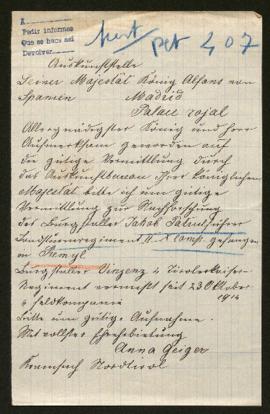 A
Pedir informes
Que se haca asi
Devolver
Pet 407
Auskunftstelle
Seiner Majestät König Alfons von
Spanien Madrid
Palace rojal
Allergnädigster König und Herr
Aufmerksam geworden auf
die gütige Vermittlung durch
das Auskunftbureau Ihrer königlichen
Majestät bitte ich um gütige
Vermittlung zur Nachforschung
des Burgstaller Jakob
Landsturmregiment II Komp. gefangen
in
Burgstaller Vinzenz 4 Tiroler Kaiser-
Regiment vermisst seit 23 Oktober
1914
4 Feldkompanie
Bitte um gütige Aufnahme.
Mit vollster Ehrebietung
Anna Geiger
Kramsach Nordtirol